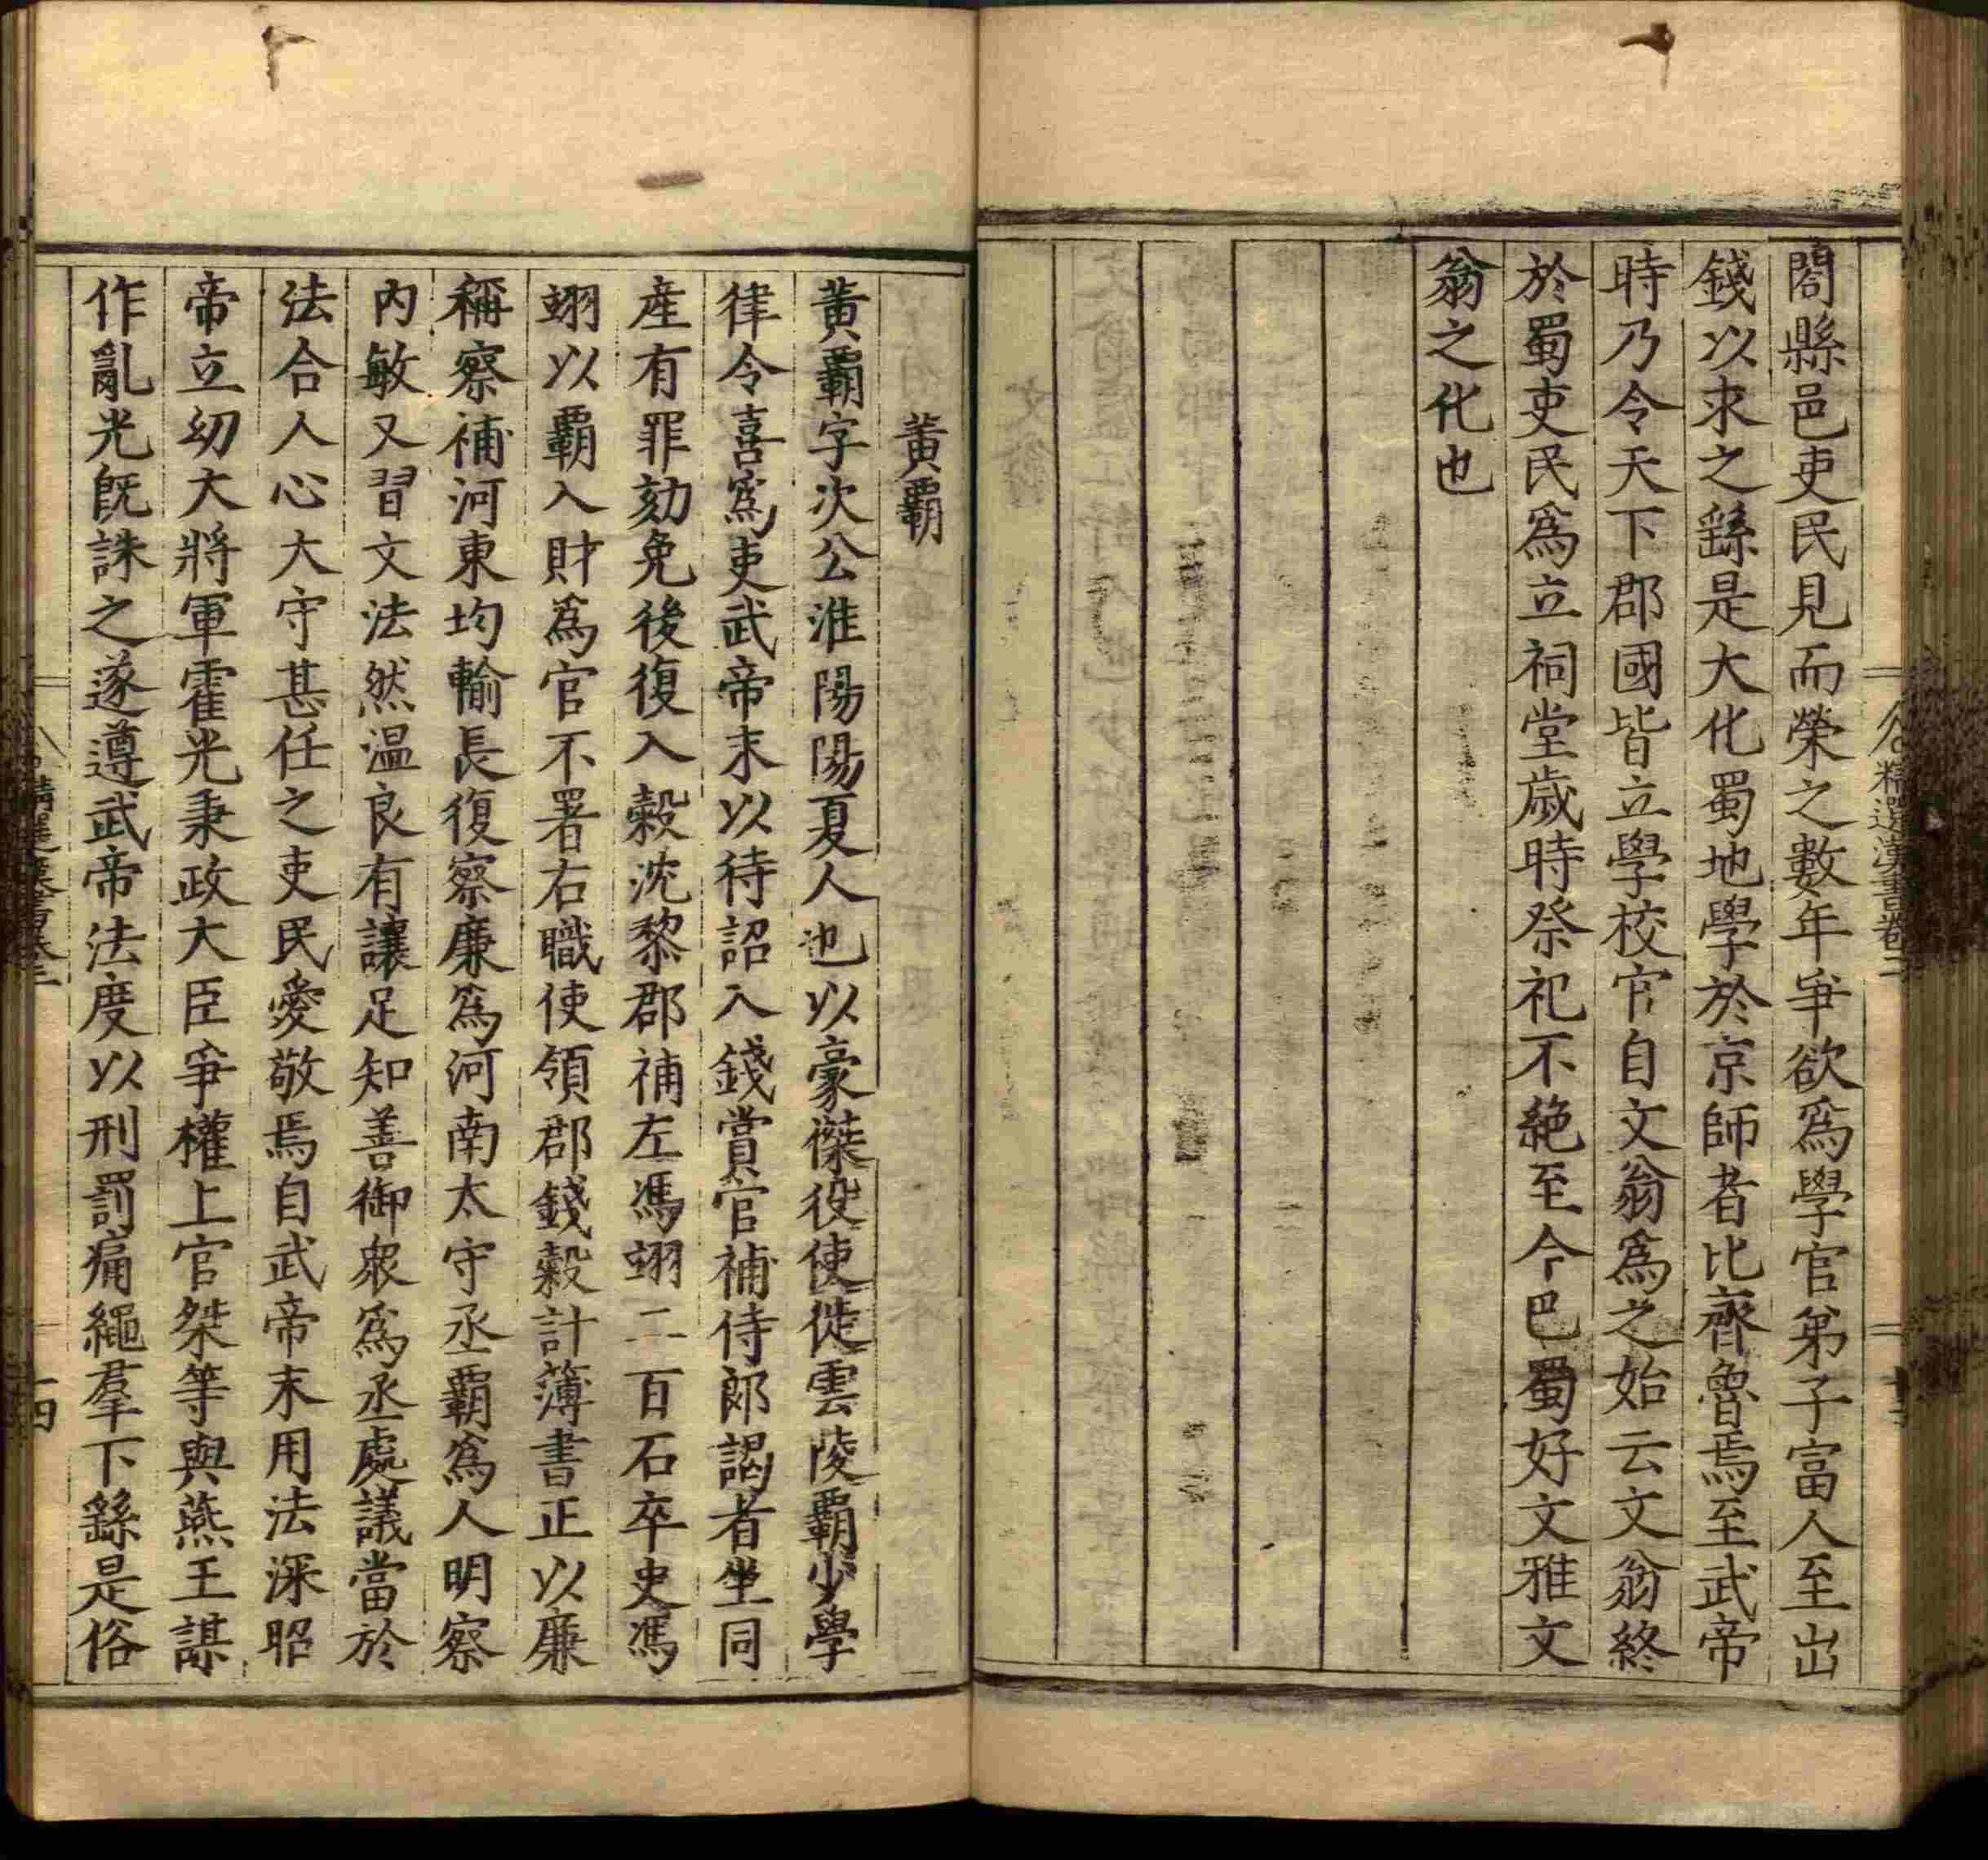 閤縣邑吏民見而榮之數年爭欲爲學官弟子富人至出
錢以求之繇是大化蜀地學於京師者比齊魯焉至武帝
時乃令天下郡國皆立學校官自文翁爲之始云文翁終
於蜀吏民爲立祠堂歲時祭祀不絶至今巴蜀好文雅文
翁之化也
精選漢書卷
黃霸
黃霸字次公淮陽陽夏人也以豪傑役使徙雲陵霸少學
律令喜爲吏武帝末以待詔入錢賞官補侍郎謁者坐同
産有罪劾免後復入穀沈黎郡補左馮翊二百石卒史馮
翊以霸入財爲官不署右職使領郡錢穀計簿書正以廉
稱察補河東均輸長復察廉爲河南太守丞霸爲人明察
內敏又習文法然温良有讓足知善御衆爲丞處議當於
法合人心大守甚任之吏民愛敬焉自武帝末用法深昭
帝立幼大將軍霍光秉政大臣爭權上官桀等與燕王謀
作亂光旣誅之遂遵武帝法度以刑罰痛繩羣下繇是俗